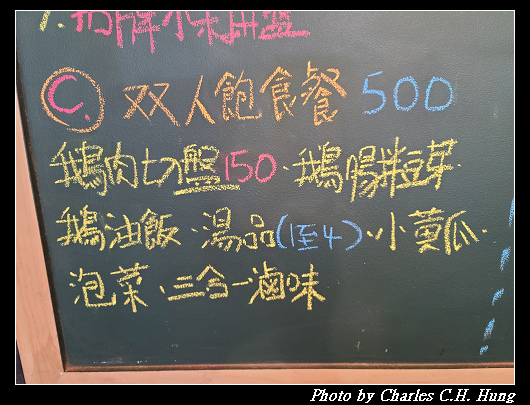 7.招牌小菜拼盤
C. 双人飽食餐 500
鵝肉切盤150·鵝腸拌豆芽·
鵝油飯·湯品(1至4)·小黃瓜·
泡菜·三合一滷味
Photo by Charles C.H. Hung